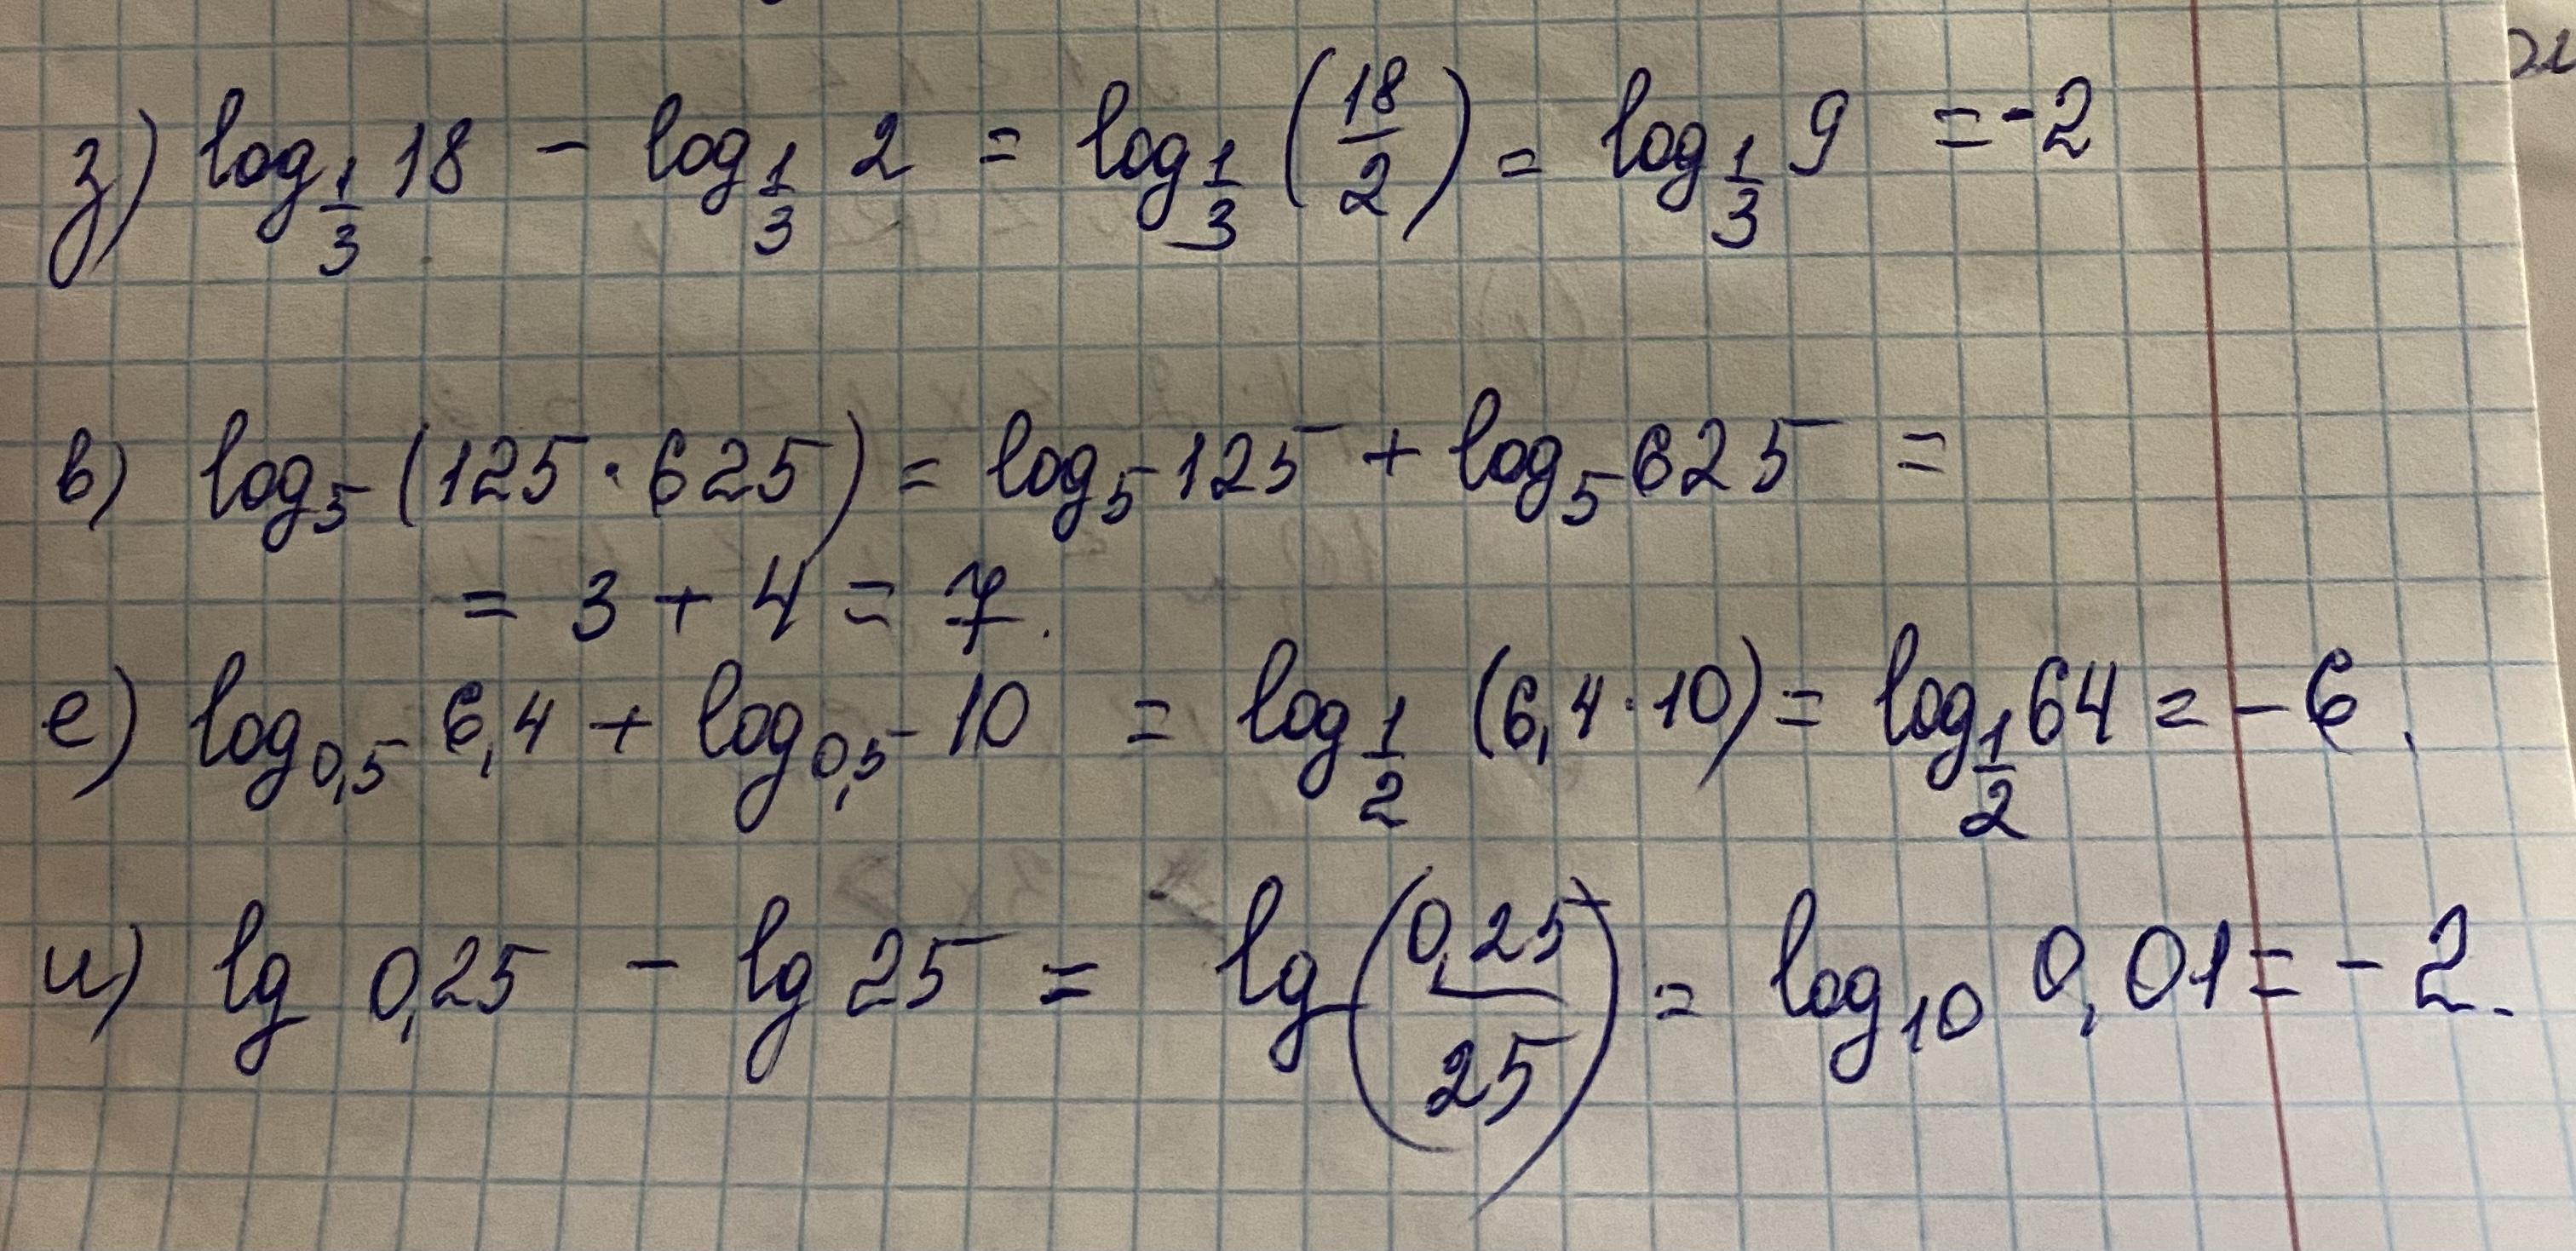 з) log_{1/3} 18 - log_{1/3} 2 = log_{1/3} (18/2) = log_{1/3} 9 = -2
в) log_5 (125 · 625) = log_5 125 + log_5 625 =
= 3 + 4 = 7.
е) log_{0,5} 6,4 + log_{0,5} 10 = log_{1/2} (6,4 · 10) = log_{1/2} 64 = -6.
и) lg 0,25 - lg 25 = lg (0,25/25) = log_{10} 0,01 = -2.